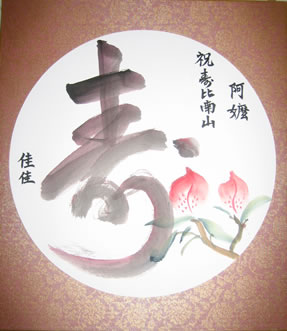 阿嬤
祝壽比南山
寿
佳佳